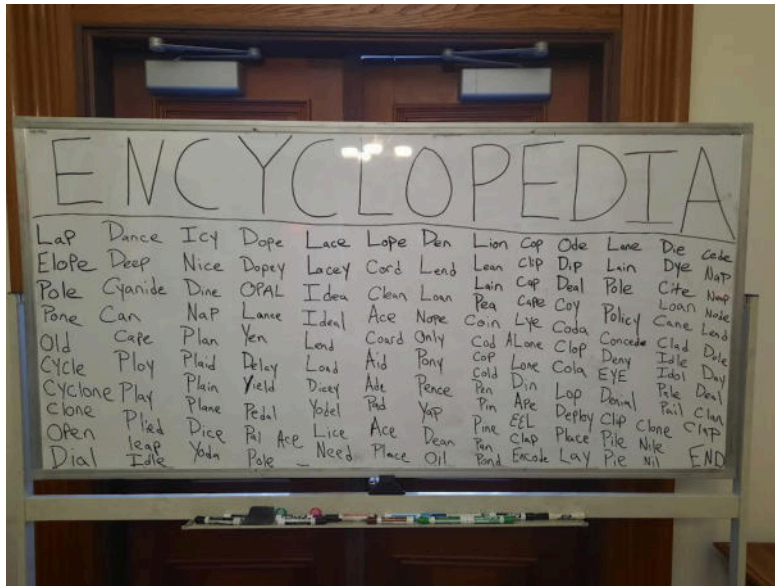 ENCYCLOPEDIA
Lap
Elope
Pole
Pone
Old
Cycle
Cyclone
Clone
Open
Dial
Dance
Deep
Cyanide
Can
Cape
Ploy
Play
Plied
leap
Idle
Icy
Nice
Dine
Nap
Plan
Plaid
Plain
Plane
Dice
Yoda
Dope
Dopey
OPAL
Lance
Yen
Delay
Yield
Pedal
Pal Ace
Pole
Lace
Lacey
Idea
Ideal
Lend
Load
Dicey
Yodel
Lice
Need
Lope
Cord
Clean
Ace
Coard
Aid
Ade
Pad
Ace
Place
Den
Lend
Loan
Nope
Only
Pony
Pence
Yap
Dean
Oil
Lion
Lean
Lain
Pea
Coin
Cod
Cop
Cold
Pen
Pin
Pine
Pan
Pond
Cop
Clip
Cap
Cape
Lye
ALone
Lone
Din
Ape
EEL
Clap
Encode
Ode
Dip
Deal
Coy
Coda
Clop
Cola
Lop
Deploy
Place
Lay
Lane
Lain
Pole
Policy
Concede
Deny
EYE
Denial
Clip
Pile
Pie
Die
Dye
Cite
Loan
Cane
Clad
Idle
Idol
Pale
Pail
Clone
Nile
Nil
Cede
Nap
Node
Lead
Dole
Day
Deal
Clan
Clap
END